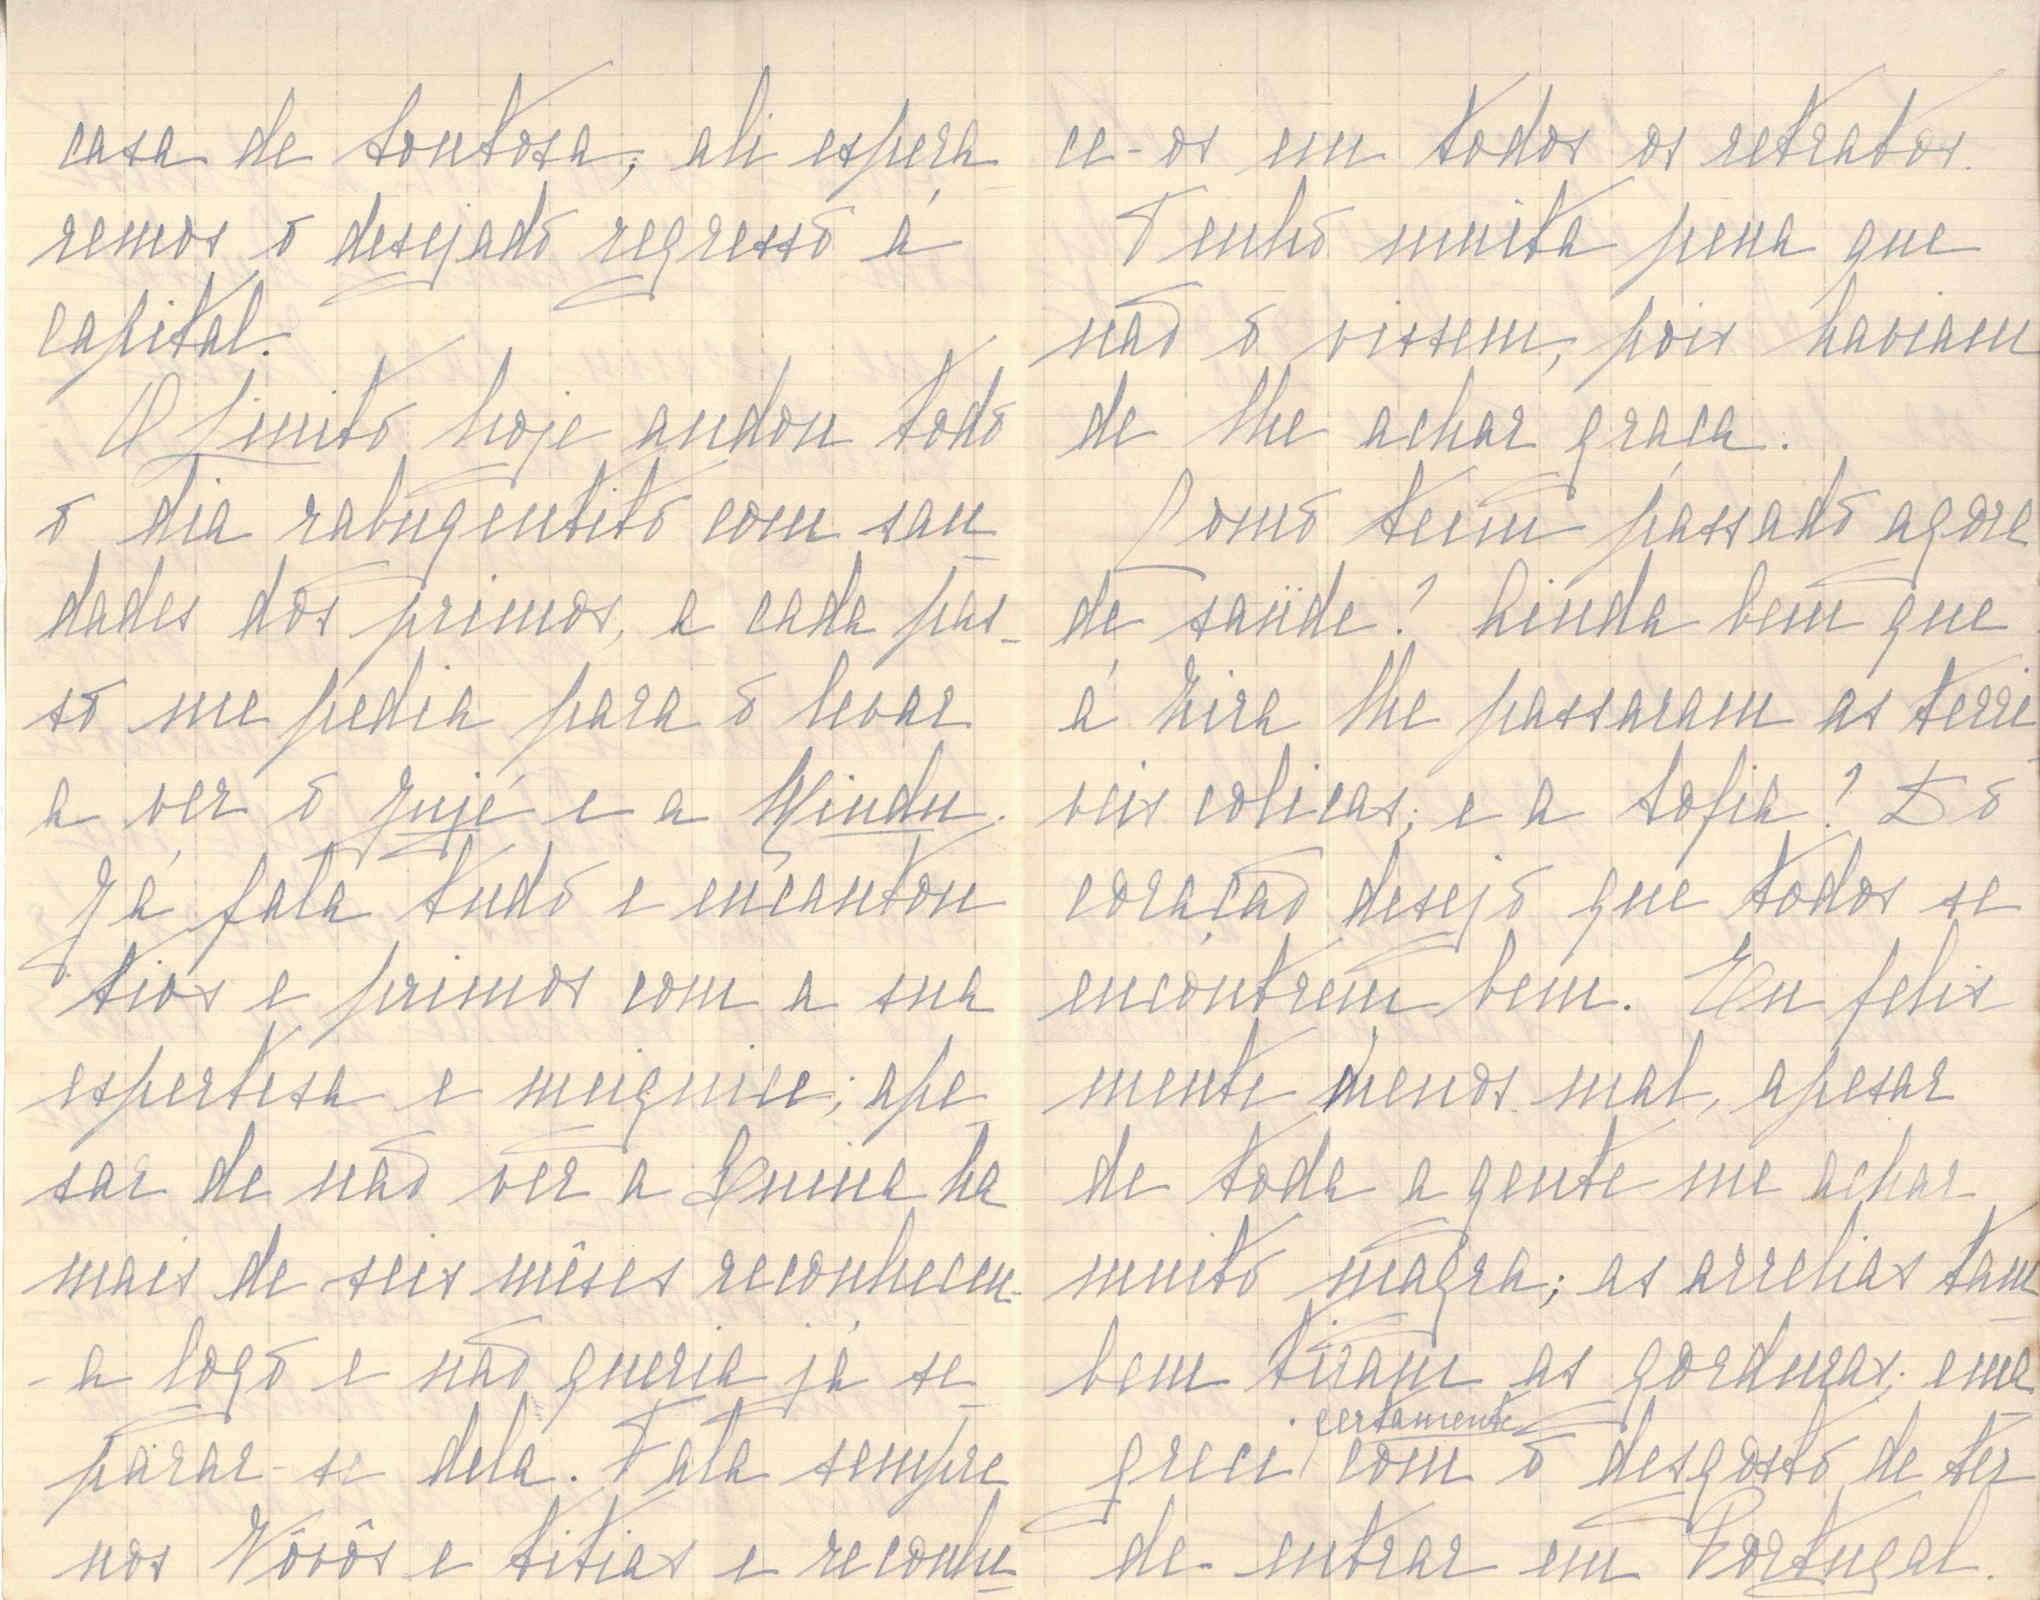 casa de Sontosa; ali espera
remos o desejado regresso á
capital.
O Linito hoje andou todo
o dia rabugentito com sau
dades dos primos, a cada pas-
so me pedia para o levar
a ver o Jujé e a Mindu.
Já fala tudo e encantou
tios e primos com a sua
espertesa e meiguice; ape
sar de não ver a Enina ha
mais de seis mêses reconheceu-
-a logo e não queria já se
parar-se dela. Fala sempre
nos Vôvôs e titias e reconhe
ce-os em todos os retratos.
Tenho muita pena que
não o vissem, pois haviam
de lhe achar graça.
Como teem passado agora
de saüde? Ainda bem que
á Zira lhe passaram as terri
veis colicas; e a Sofia? Do
coração desejo que todos se
encontrem bem. Eu felis
mente menos mal, apesar
de toda a gente me achar
muito magra; as arrelias tam
bem tiram as gorduras; ema
greci certamente com o desgosto de ter
de entrar em Portugal.